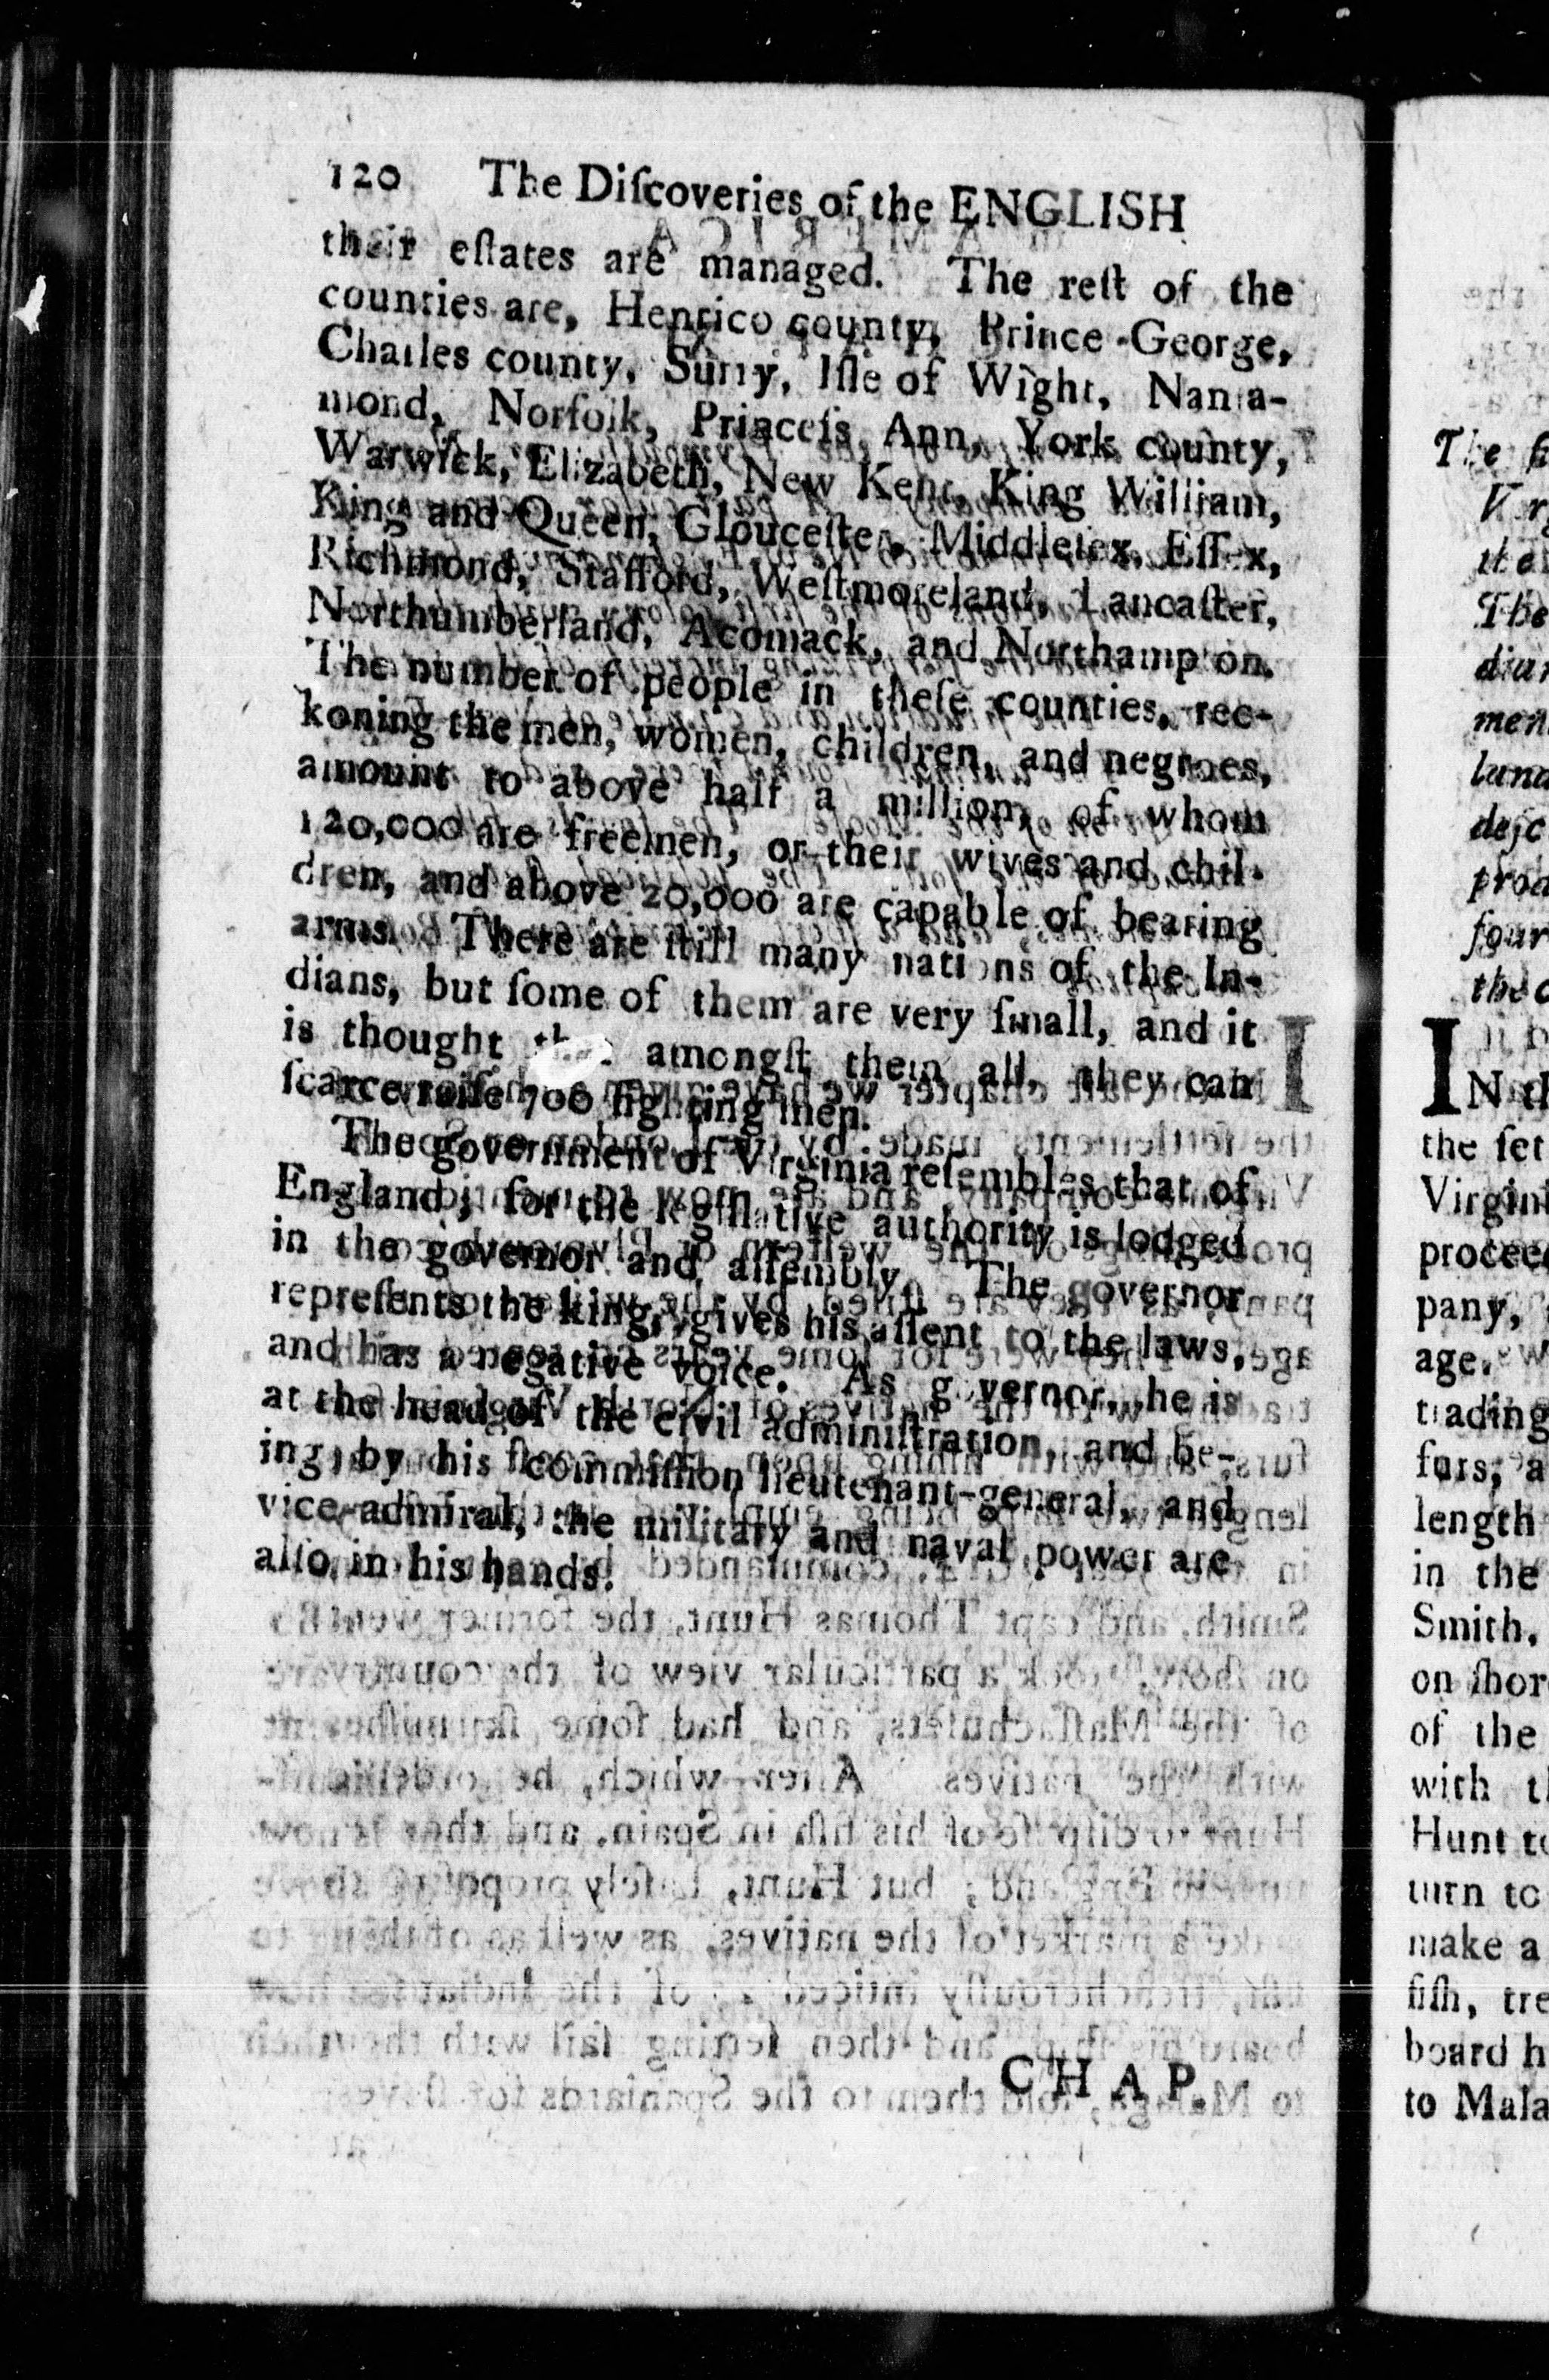 120 The Diſcoveries of the ENGLISH
their eſtates are managed. The reſt of the
counties are, Henrico county, Prince George,
Charles county, Surry, Iſle of Wight, Nanſa-
mond, Norfolk, Princeſs Ann, York county,
Warwick, Elizabeth, New Kent, King William,
King and Queen, Glouceſter, Middleſex, Eſſex,
Richmond, Stafford, Weſtmoreland, Lancaſter,
Northumberland, Acomack, and Northampton.
The number of people in theſe counties, rec-
koning the men, women, children, and negroes,
amount to above half a million, of whom
120,000 are freemen, or their wives and chil-
dren, and above 20,000 are capable of bearing
arms. There are ſtill many nations of the In-
dians, but ſome of them are very ſmall, and it
is thought that amongſt them all, they can
ſcarce raiſe 700 fighting men.
The government of Virginia reſembles that of
England; for the legiſlative authority is lodged
in the governor and aſſembly. The governor
repreſents the king, gives his aſſent to the laws,
and has a negative voice. As governor, he is
at the head of the civil adminiſtration, and be-
ing, by his commiſſion lieutenant-general, and
vice-admiral, the military and naval power are
alſo in his hands.
CHAP.
The
The
men
prod
four
the
IN
the ſet
Virgini
proceed
pany,
age.
trading
furs, a
length
in the
Smith,
on ſhor
of the
with t
Hunt to
turn to
make a
fiſh, tre
board h
to Mala